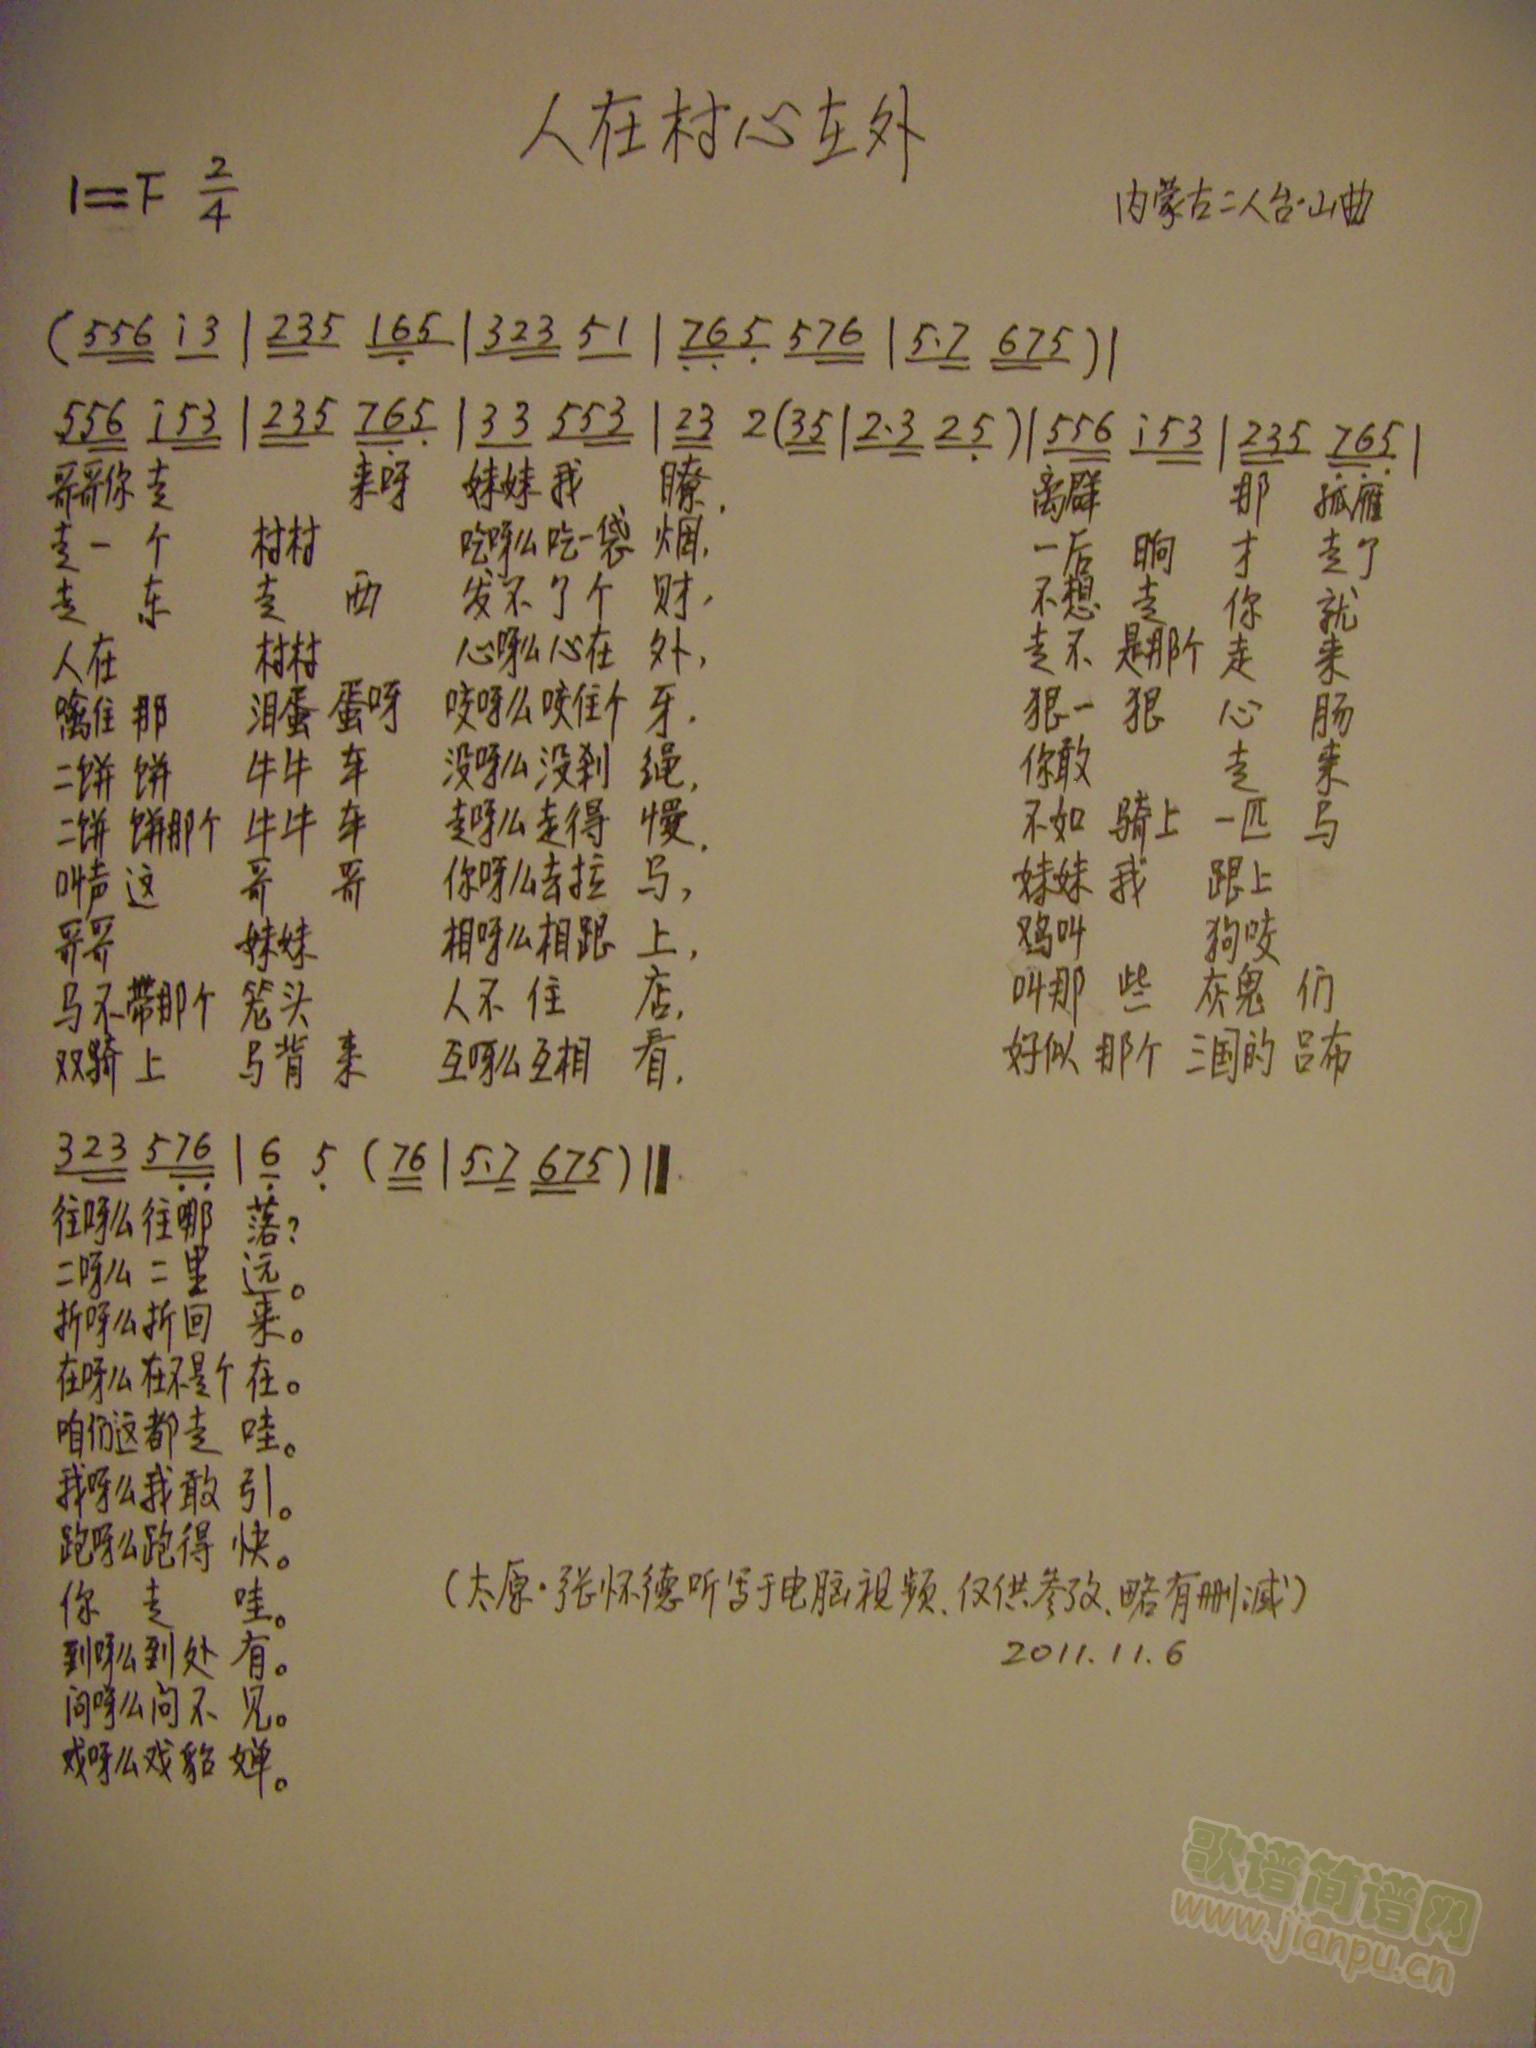 人在村心在外
1=F 2/4
内蒙古二人台·山曲
(556 i3 | 235 165 | 323 51 | 765 576 | 5·7 675 ) |
556 i53 | 235 765 | 33 553 | 23 2(35 | 2·3 25 ) | 556 i53 | 235 765 |
哥哥你走 来呀 妹妹我 瞭, 离群 那 孤雁
走一个 村村 吃呀么吃一袋 烟, 一后 晌 才 走了
走 东 走 西 发不了个 财, 不想 走 你 就
人在 村村 心呀么心在 外, 走不 是那个 走 来
噙住那 泪蛋 蛋呀 咬呀么咬住个 牙, 狠一 狠 心 肠
二饼 饼 牛牛 车 没呀么没刹 绳, 你敢 走 来
二饼 饼那个 牛牛 车 走呀么走得 慢, 不如 骑上 一匹 马
叫声 这 哥 哥 你呀么去拉 马, 妹妹 我 跟上
哥哥 妹妹 相呀么相跟 上, 鸡叫 狗咬
马不带那个 笼头 人不 住 店, 叫那 些 灰鬼 们
双骑 上 马背 来 互呀么互相 看, 好似 那个 三国的 吕布
323 576 | 6 5 (76 | 5·7 675 ) ‖
往呀么往哪 落?
二呀么二里 远。
折呀么折回 来。
在呀么在不是个 在。
咱们这都走 哇。
我呀么我敢 引。
跑呀么跑得 快。
你 走 哇。
到呀么到处 有。
问呀么问不 见。
戏呀么戏貂 婵。
(太原·张怀德听写于电脑视频、仅供参考、略有删减)
2011.11.6
歌谱简谱网
www.jianpu.cn